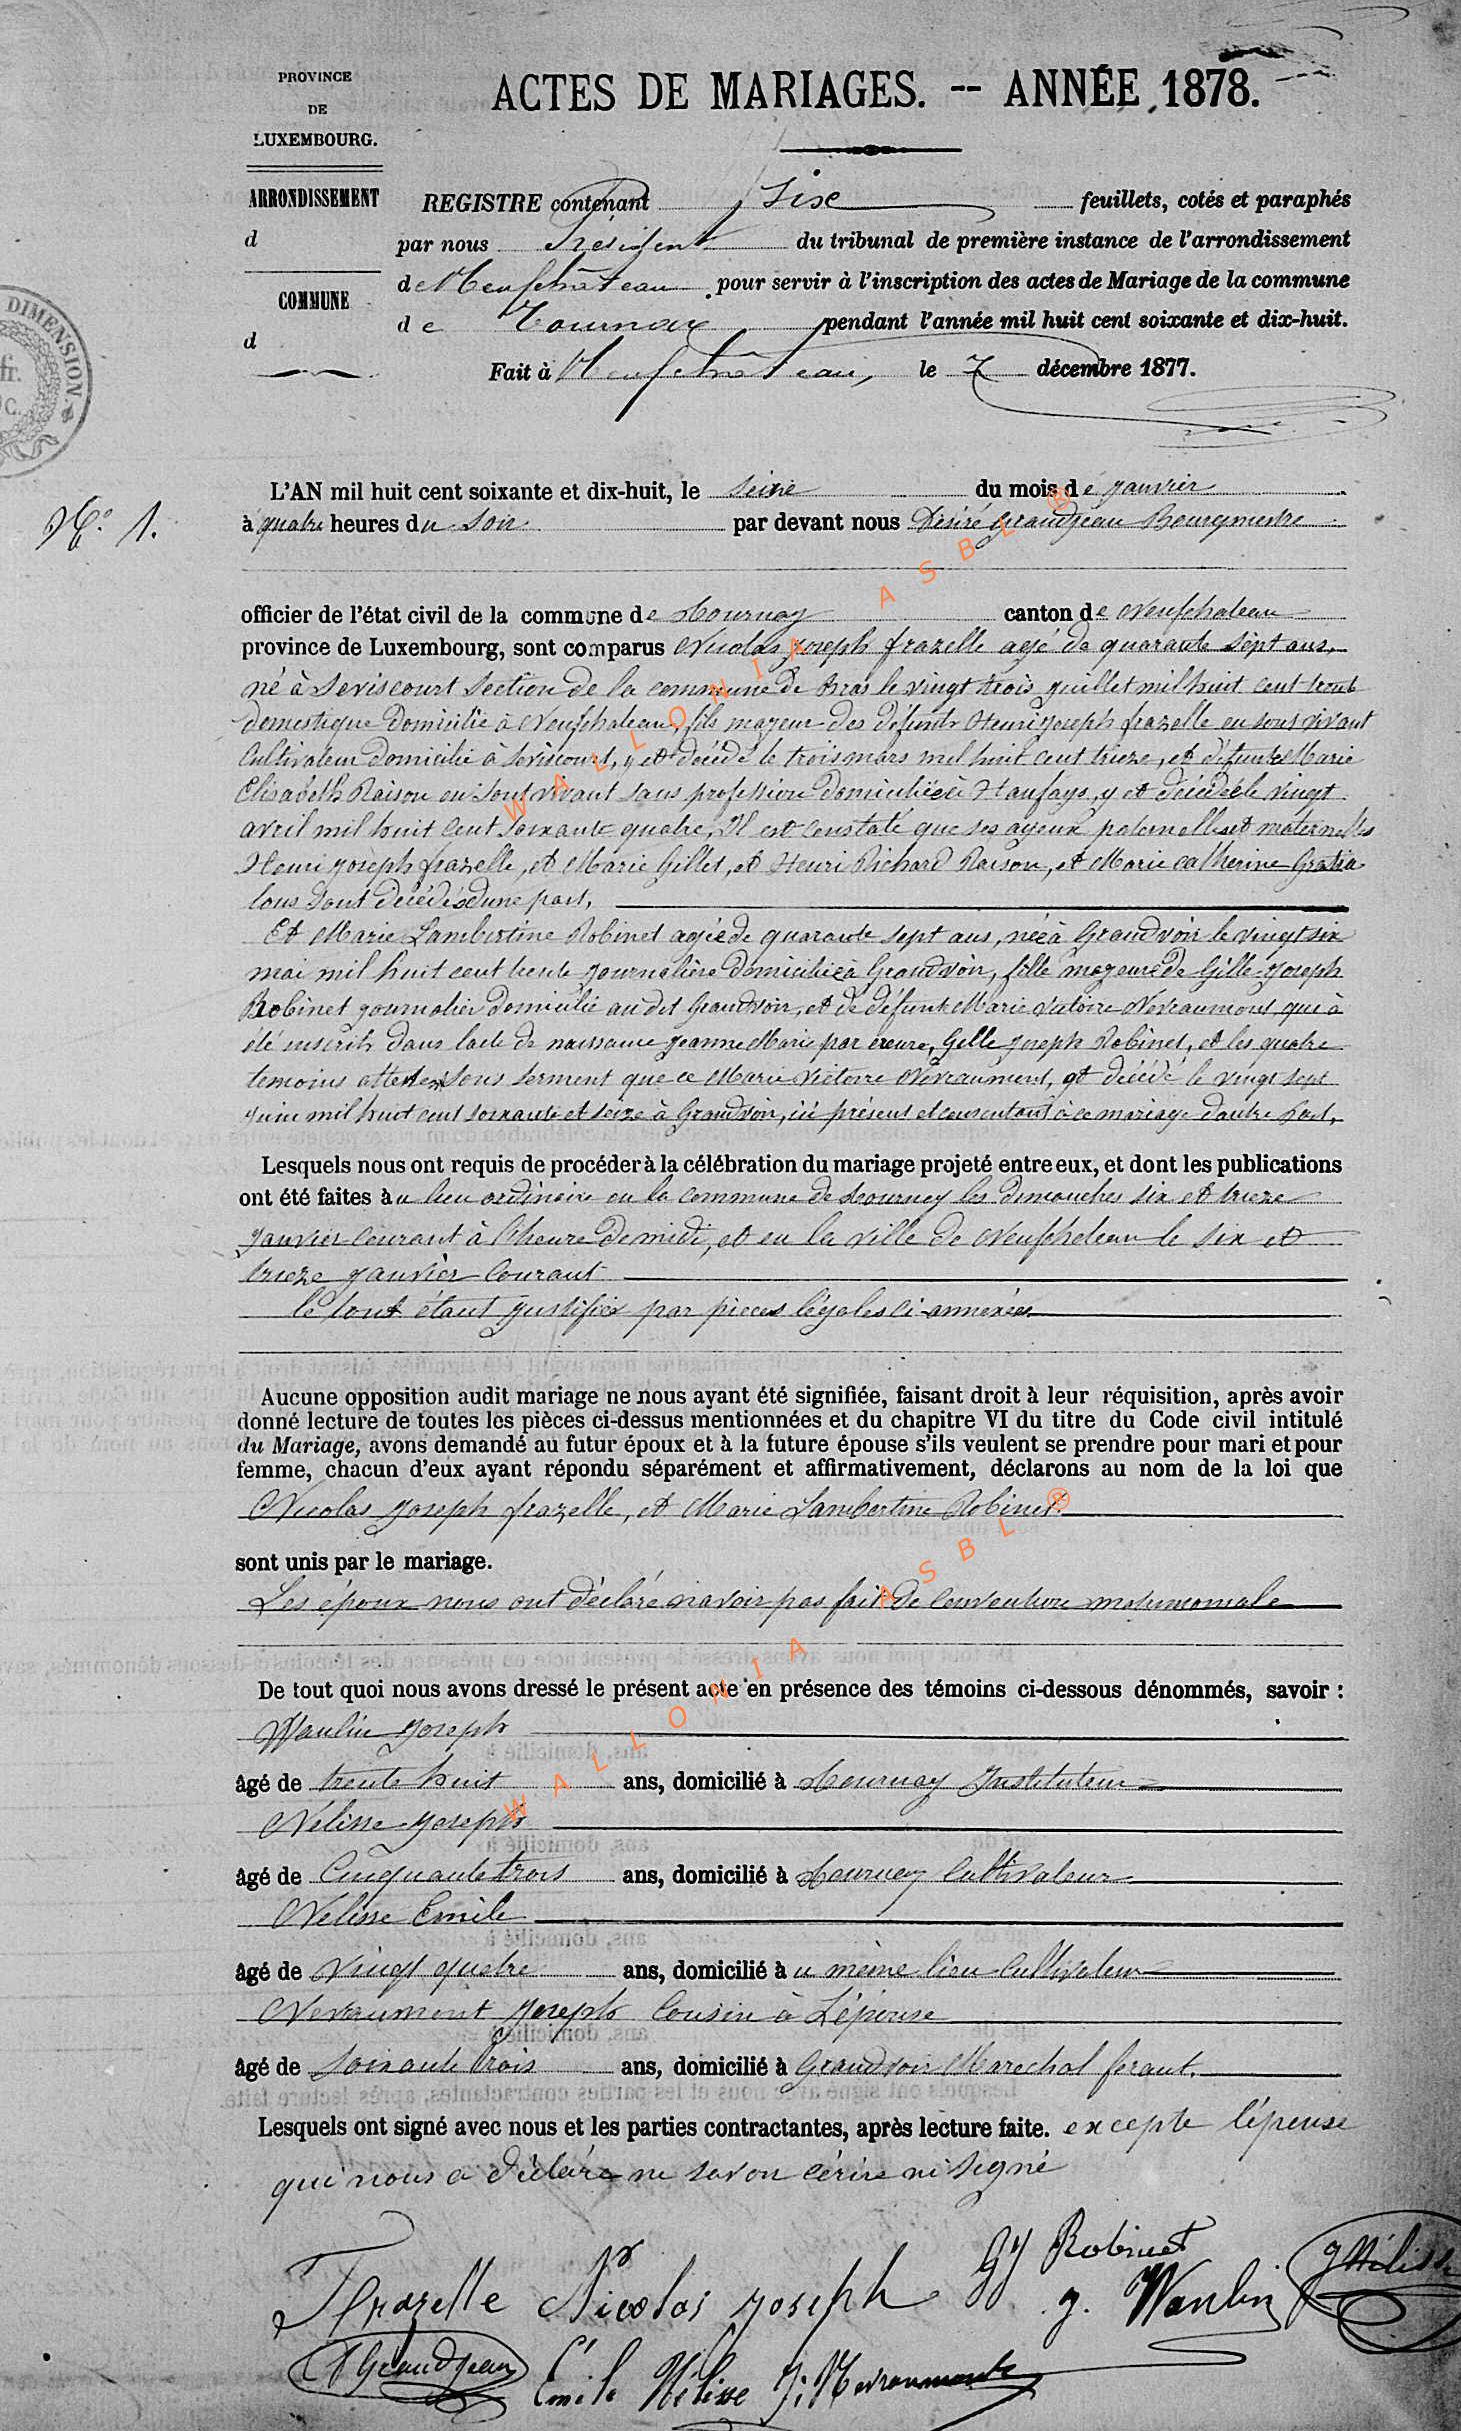 PROVINCE
DE
LUXEMBOURG.
ARRONDISSEMENT
d
COMMUNE
d
DIMENSION.
fr.
C.
ACTES DE MARIAGES. -- ANNÉE 1878.
REGISTRE contenant six feuillets, cotés et paraphés
par nous Président du tribunal de première instance de l'arrondissement
de Neufchâteau pour servir à l'inscription des actes de Mariage de la commune
de Tournay pendant l'année mil huit cent soixante et dix-huit.
Fait à Neufchâteau, le 7 décembre 1877.
N.° 1.
L'AN mil huit cent soixante et dix-huit, le seize du mois de janvier
à quatre heures du soir par devant nous Désiré Grandjean Bourgmestre
officier de l'état civil de la commune de Tournay canton de Neufchateau
province de Luxembourg, sont comparus Nicolas Joseph frazelle agé de quarante sept ans,
né à Seviscourt Section de la commune de Bras le vingt trois juillet mil huit cent trente
domestique domicilié à Neufchateau, fils majeur des défunts Henri joseph frazelle en sont vivant
Cultivateur domicilié à Séviscourt, y est décédé le trois mars mil huit cent trieze, et défunte Marie
Elisabeth Raison en sont vivant sans profession domiciliée à Haufays y est décédée le vingt
avril mil huit cent soixante quatre, Il est constaté que ses ayeux paternelles et maternelles
Henri joseph frazelle, et Marie Gillet, et Henri Richard Raison, et Marie catherine Gratia
tous sont décédés d'une part,
Et Marie Lambertine Robinet agée de quarante sept ans, née à Grandvoir le vingt six
mai mil huit cent trente journalière domiciliée à Grandvoir, fille majeure de Gille Joseph
Robinet journalier domicilié au dit Grandvoir, et de défunte Marie Victoire Névraumont qui à
été inscrit dans l'acte de naissance Jeanne Marie par éreure, Gille Joseph Robinet, et les quatre
temoins attestent sous serment que ce Marie Victoire Névraumont, est décédé le vingt sept
juin mil huit cent soixante et seize à Grandvoir, ici présent et consentant à ce mariage d'autre part,
Lesquels nous ont requis de procéder à la célébration du mariage projeté entre eux, et dont les publications
ont été faites au lieu ordinaire en la commune de Tournay les dimanches six et trieze
janvier courant à l'heure de midi, et en la ville de Neufchateau le six et
trieze janvier courant
le tout étant justifiée par pieces légales ci-annexées
Aucune opposition audit mariage ne nous ayant été signifiée, faisant droit à leur réquisition, après avoir
donné lecture de toutes les pièces ci-dessus mentionnées et du chapitre VI du titre du Code civil intitulé
du Mariage, avons demandé au futur époux et à la future épouse s'ils veulent se prendre pour mari et pour
femme, chacun d'eux ayant répondu séparément et affirmativement, déclarons au nom de la loi que
Nicolas Joseph frazelle, et Marie Lambertine Robinet
sont unis par le mariage.
Les époux nous ont déclaré n'avoir pas fait de Convention matrimoniale
De tout quoi nous avons dressé le présent acte en présence des témoins ci-dessous dénommés, savoir :
Wanlin Joseph
âgé de trente huit ans, domicilié à Tournay Instituteur
Nélisse Joseph
âgé de Cinquante trois ans, domicilié à Tournay Cultivateur
Nélisse Emile
âgé de vingt quatre ans, domicilié au même lieu Cultivateur
Nevraumont Joseph Cousin à L'épouse
âgé de soixante trois ans, domicilié à Grandvoir Marechal ferant.
Lesquels ont signé avec nous et les parties contractantes, après lecture faite. excepte l'épeuse
qui nous a déclaré ne savon cérire ni signé
Frazelle Nicolas joseph GJ Robinet
J. Wanlin J Nélisse
D Grandjean Emile Nélisse J: Nevraumont
WALLONIA ASBL ®
WALLONIA ASBL ®